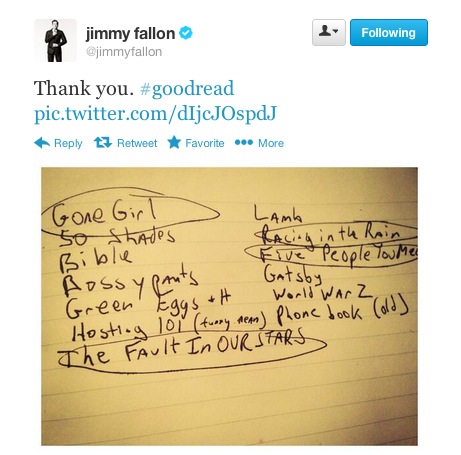 jimmy fallon
@jimmyfallon
Following
Thank you. #goodread
pic.twitter.com/dIjcJOspdJ
Reply Retweet Favorite More
Gone Girl
50 Shades
Bible
Bossypants
Green Eggs + H
Hosting 101 (funny mean)
The Fault In OUR STARS
Lamb
Racing in the Rain
Five People You Mee
Gatsby
World War Z
Phone book (old)